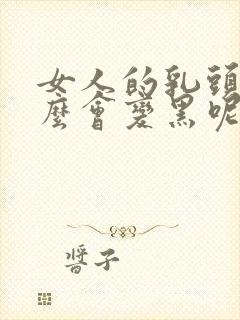 女人的乳頭
麼會變黑呢
醬子